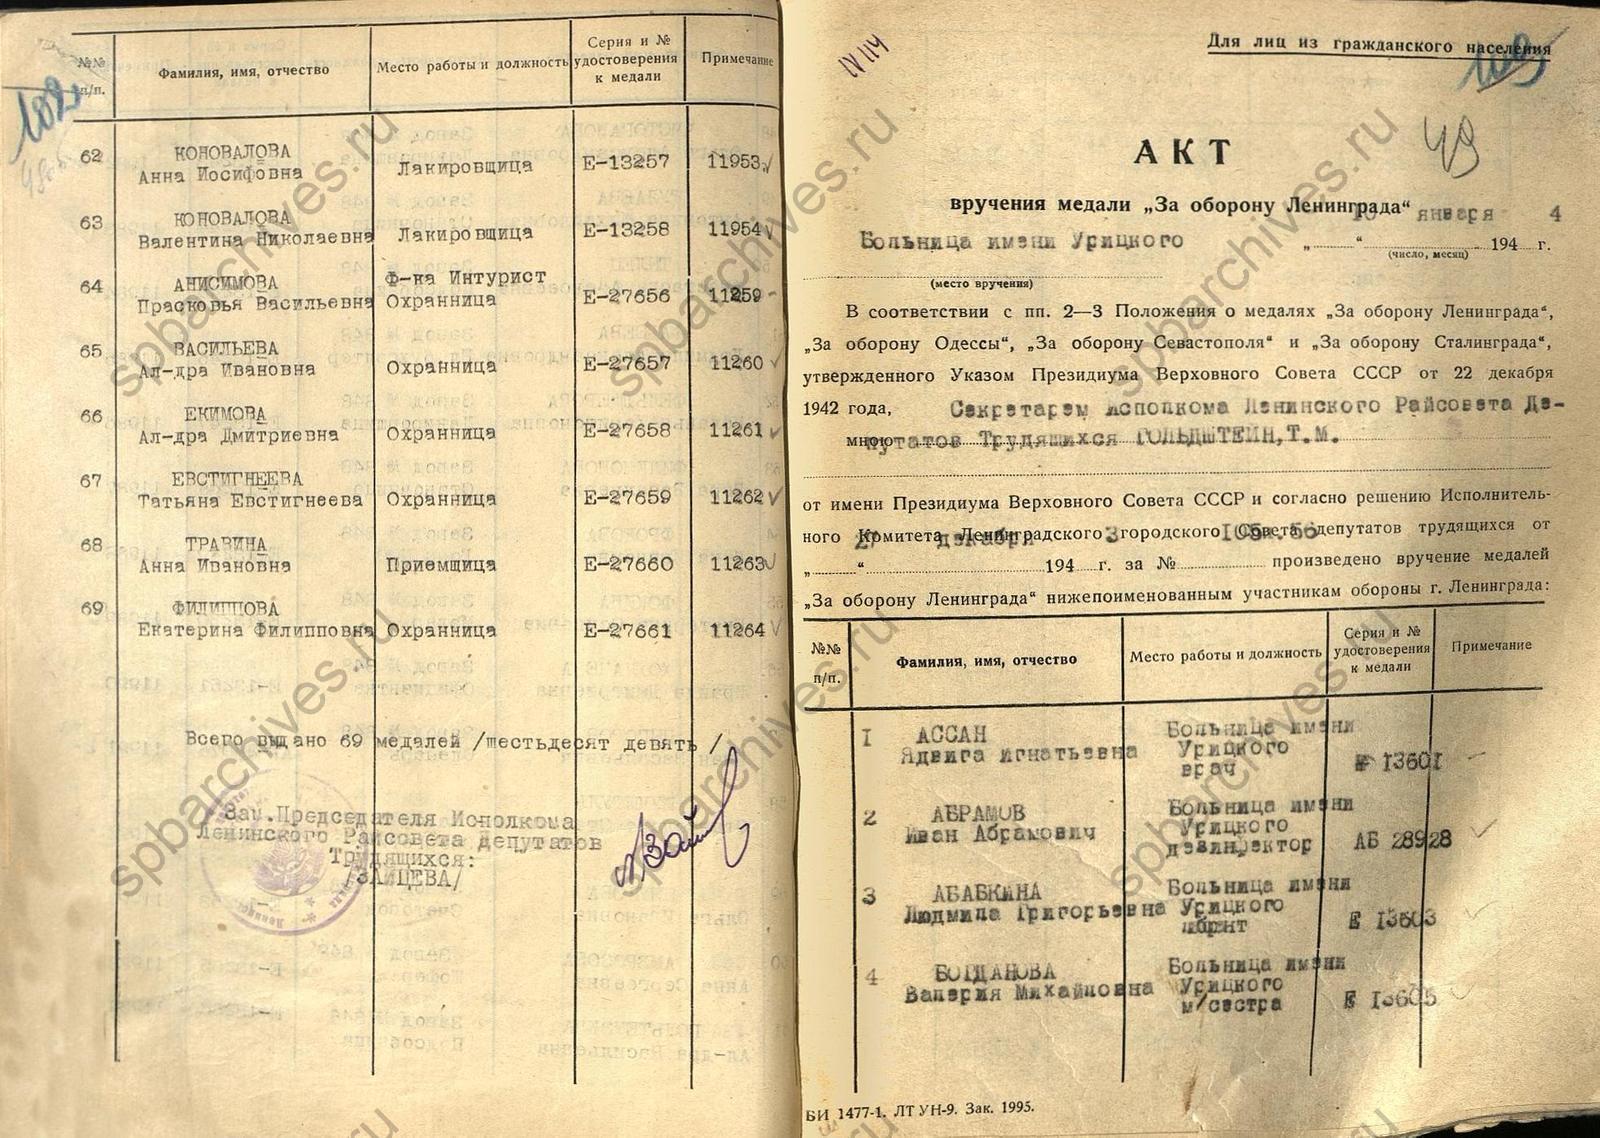 102
№№ п/п.
Фамилия, имя, отчество
Место работы и должность
Серия и № удостоверения к медали
Примечание
62 КОНОВАЛОВА
Анна Иосифовна Лакировщица Е-13257 11953
63 КОНОВАЛОВА
Валентина Николаевна Лакировщица Е-13258 11954
64 АНИСИМОВА Ф-ка Интурист
Прасковья Васильевна Охранница Е-27656 11259
65 ВАСИЛЬЕВА
Ал-дра Ивановна Охранница Е-27657 11260
66 ЕКИМОВА
Ал-дра Дмитриевна Охранница Е-27658 11261
67 ЕВСТИГНЕЕВА
Татьяна Евстигнеева Охранница Е-27659 11262
68 ТРАВИНА
Анна Ивановна Приемщица Е-27660 11263
69 ФИЛИППОВА
Екатерина Филипповна Охранница Е-27661 11264
Всего выдано 69 медалей /шестьдесят девять/
Зам.Председателя Исполкома
Ленинского Райсовета Депутатов
Трудящихся:
/ЗАЙЦЕВА/
IV 114
Для лиц из гражданского населения
103
49
АКТ
вручения медали „За оборону Ленинграда“
января 4
Больница имени Урицкого „ “ 194 г.
(число, месяц)
(место вручения)
В соответствии с пп. 2—3 Положения о медалях „За оборону Ленинграда“,
„За оборону Одессы“, „За оборону Севастополя“ и „За оборону Сталинграда“,
утвержденного Указом Президиума Верховного Совета СССР от 22 декабря
1942 года, Секретарем Исполкома Ленинского Райсовета Де-
мною путатов Трудящихся ГОЛЬДШТЕЙН,Т.М.
от имени Президиума Верховного Совета СССР и согласно решению Исполнитель-
ного Комитета Ленинградского городского Совета депутатов трудящихся от
декабря 3
„ “ 194 г. за № произведено вручение медалей
„За оборону Ленинграда“ нижепоименованным участникам обороны г. Ленинграда:
№№ п/п.
Фамилия, имя, отчество
Место работы и должность
Серия и № удостоверения к медали
Примечание
1 АССАН Больница имени
Ядвига Игнатьевна Урицкого
врач Е 13601
2 АБРАМОВ Больница имени
Иван Абрамович Урицкого
дезинфектор АБ 28928
3 АБАБКИНА Больница имени
Людмила Григорьевна Урицкого
Е 13603
4 БОГДАНОВА Больница имени
Валерия Михайловна Урицкого
м/сестра Е 13605
БИ 1477-1. ЛТ УН-9. Зак. 1995.
spbarchives.ru
spbarchives.ru
spbarchives.ru
spbarchives.ru
spbarchives.ru
spbarchives.ru